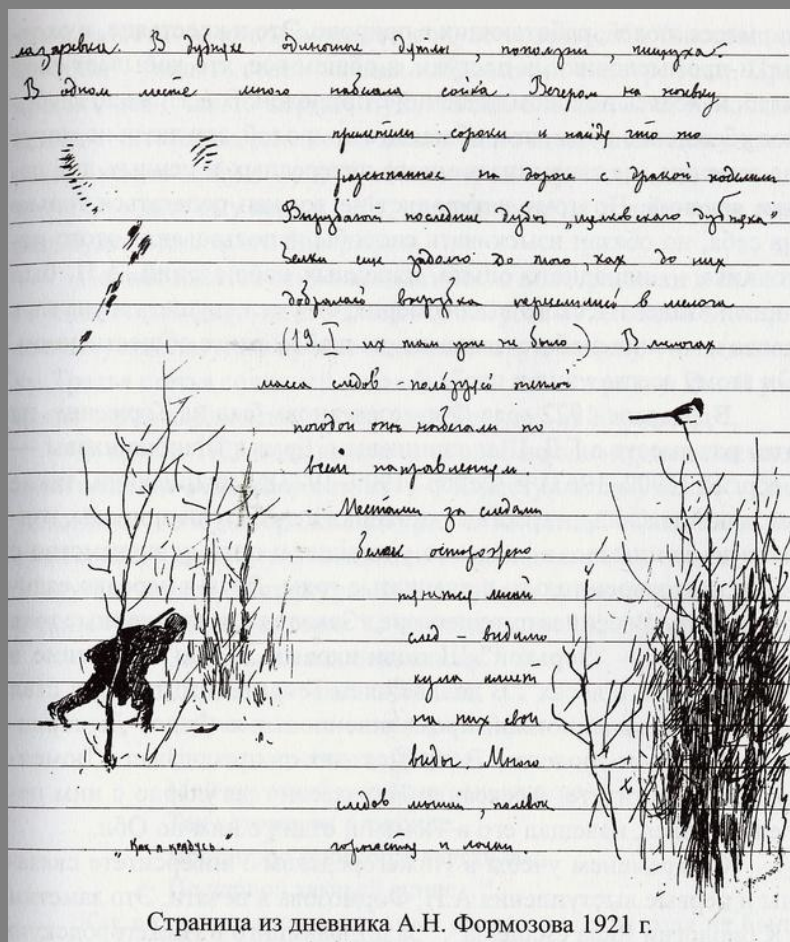 лазаревки. В дубняке одиночные дятлы, поползни, пищуха.
В одном месте много набегала сойка. Вечером на ночевку
прилетели сороки и найдя что то
рассыпанное на дороге с дракой поделили
Вырубают последние дубы „щелковского дубняка"
Белки еще задолго до того как до них
добралась вырубка переселились в мелоча
(19.I их там уже не было) В мелочах
масса следов - полдружей тёплой
погодой они набегали по
всем направлениям.
Местами за следами
белок осторожно
тянется
след - видимо
кума имеет
на них свои
виды. Много
следов мыши, полевок
горностая и ласки.
Как я крадусь..
Страница из дневника А.Н. Формозова 1921 г.